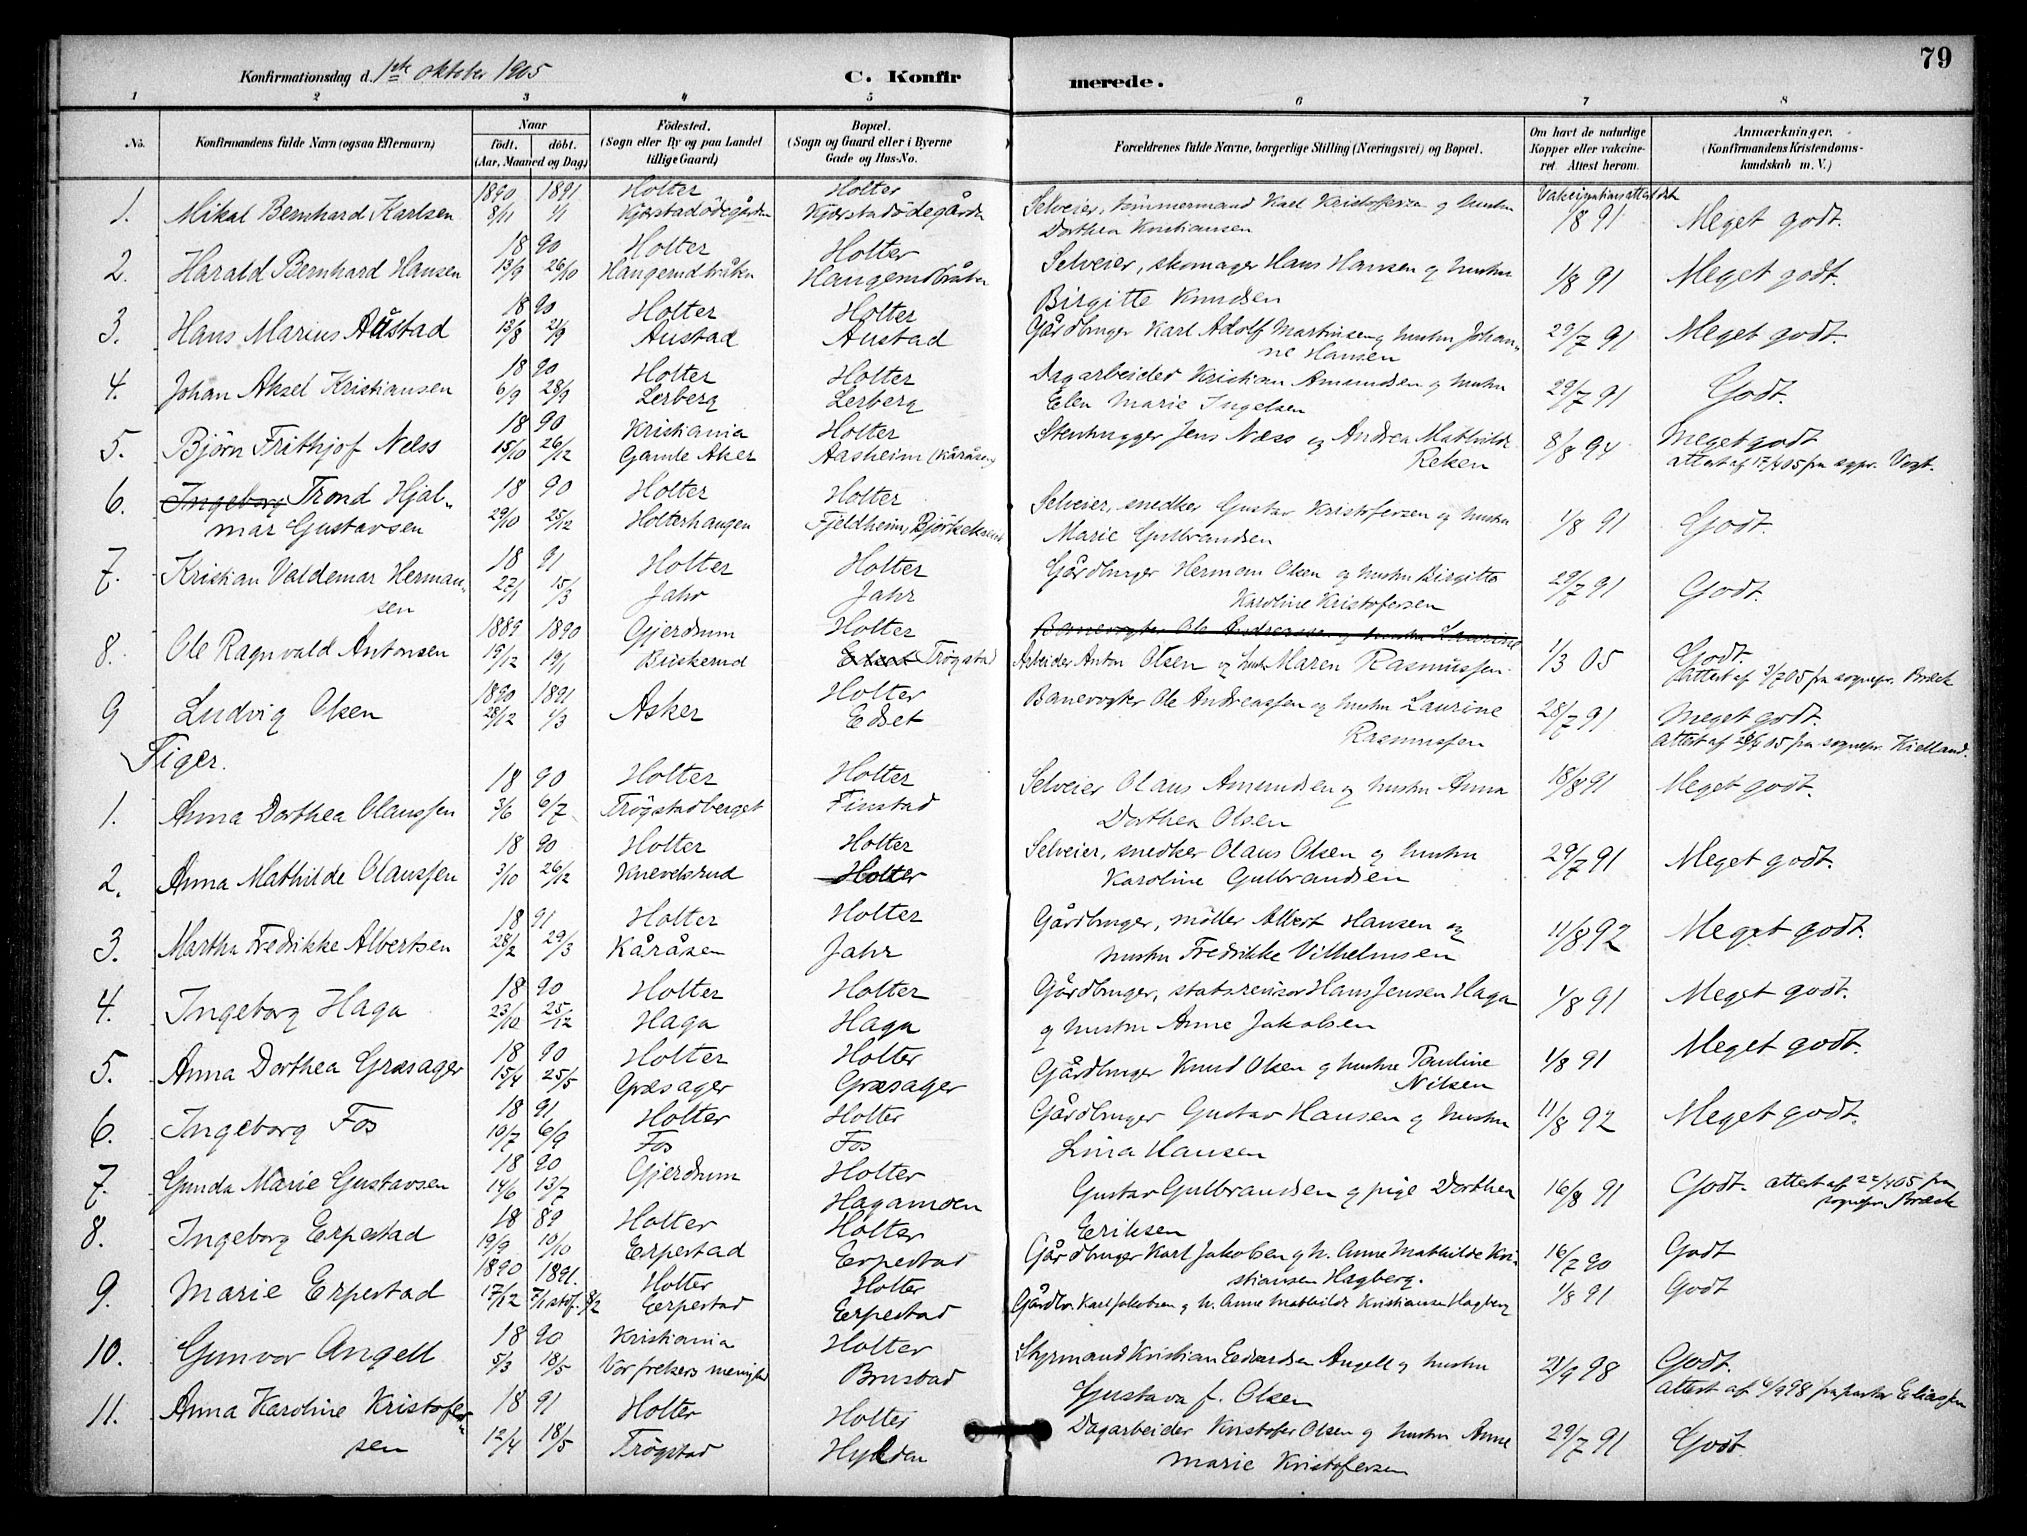 79
Konfirmationsdag d. 1ste oktober 1905 C. Konfirmerede.
1 2 3 4 5 6 7 8
No. Konfirmandens fulde Navn (ogsaa Efternavn) Naar födt. döbt. (Aar, Maaned og Dag) Födested. (Sogn eller By og paa Landet tillige Gaard) Bopæl. (Sogn og Gaard eller i Byerne Gade og Hus-No. Forældrenes fulde Navne, borgerlige Stilling (Næringsvei) og Bopæl. Om havt de naturlige Kopper eller vaccineret. Attest herom. Anmærkninger. (Konfirmandens Kristendomskundskab m. V.)
1. Mikal Bernhard Karlsen 1890 8/11 1891 1/1 Holter Kjærstadödegården Holter Kjærstadödegården Selveier, tømmermand Karl Kristofersen og hustru Dorthea Kristiansen 1/8 91 Meget godt.
2. Harald Bernhard Hansen 1890 13/9 26/10 Holter Haugerudbråten Holter Haugerudbråten Selveier, skomager Hans Hansen og hustru Birgitte Knudsen 1/8 91 Meget godt.
3. Hans Marius Austad 1890 13/8 21/9 Holter Austad Holter Austad Gårdbruger Karl Adolf Martinsen og hustru Johanne Hansen 29/7 91 Meget godt.
4. Johan Aksel Kristiansen 1890 6/9 28/9 Holter Lerberg Holter Lerberg Dagarbeider Kristian Amundsen og hustru Elen Marie Ingelsen 29/7 91 Godt.
5. Björn Frithjof Nelss 1890 15/10 26/12 Kristiania Gamle Aker Holter Aasheim (Kåråsen) Stenhugger Jens Næss og Andrea Mathilde Reken 8/8 94 Meget godt attest af 17/405 fra sgpr. Vogt.
6. Ingeborg Trond Hjalmar Gustavsen 1890 29/10 25/12 Holter Holterhaugen Holter Fjeldheim, Selveier, snedker Gustav Kristofersen og hustru Marie Gulbrandsen 1/8 91 Godt.
7. Kristian Valdemar Hermansen 1891 27/1 15/3 Holter Jahr Holter Jahr Gårdbruger Herman Olsen og hustru Birgitte Karoline Kristofersen 29/7 91 Godt.
8. Ole Ragnvald Antonsen 1889 19/12 1890 19/1 Gjerdrum Buskerud Holter Trögstad Banevogter Ole Andreassen og hustru Laurine
Arbeider Anton Olsen og hustr Maren Rasmussen. 1/3 05 Godt. Attest af 3/705 fra sognepr. Bræck
9 Ludvig Olsen 1890 28/12 1891 1/3 Asker Holter Edset Banevogter Ole Andreassen og hustru Laurine Rasmussen 28/7 91 Meget godt. Attest af 05 fra sognepr. Kielland.
Piger.
1. Anna Dorthea Olaussen 1890 3/6 6/7 Holter Trögstadberget Holter Finstad Selveier Olaus Amundsen og hustru Anna Dorthea Olsen 18/8 91 Meget godt.
2. Anna Mathilde Olaussen 1890 3/10 26/12 Holter Knevelsrud Holter Holter Selveier, snedker Olaus Olsen og hustru Karoline Gulbrandsen 29/7 91 Meget godt.
3. Martha Fredrikke Albertsen 1891 28/2 29/3 Holter Kåråsen Holter Jahr Gårdbruger, möller Albert Hansen og hustru Fredrikke Vilhelmsen 11/8 92 Meget godt.
4. Ingeborg Haga 1890 23/10 25/12 Holter Haga Holter Haga Gårdbruger, statsrevisor Hans Jensen Haga og hustru Anne Jakobsen 1/8 91 Meget godt.
5. Anna Dorthea Græsager 1890 15/4 25/5 Holter Græsager Holter Græsager Gårdbruger Knud Olsen og hustru Pauline Nilsen 1/8 91 Meget godt.
6. Ingeborg Fos 1891 10/7 6/9 Holter Fos Holter Fos Gårdbruger Gustav Hansen og hustru Lina Hansen 11/8 92 Meget godt.
7. Gunda Marie Gustavsen 1890 14/6 13/7 Gjerdrum Holter Hagamoen Gustav Gulbrandsen og pige Dorthea Eriksen 16/8 91 Godt. attest af 22/405 fra sognepr. Bræck
8. Ingeborg Erpestad 1889 19/9 10/10 Holter Erpestad Holter Erpestad Gårdbruger Karl Jakobsen og h. Anne Mathilde Kristiansen Hagberg. 16/7 90 Godt
9. Marie Erpestad 1890 17/12 1891. 7/1 stdf. 8/2 Holter Erpestad Holter Erpestad Gårdbr. Karl Jakobsen og h. Anne Mathilde Kristiansen Hagberg 1/8 91 Godt
10. Gunvor Angell 1890 5/3 18/5 Kristiania Vor frelsers menighed Holter Brustad Styrmand Kristian Edvardsen Angell og hustru Gustava f. Olsen 21/9 98 Godt. Attest af 6/998 fra pastor Eliassen
11. Anna Karoline Kristofersen 1891 12/4 18/5 Holter Trögstad Holter Hylden Dagarbeider Kristofer Olsen og hustru Anne Marie Kristofersen 29/7 91 Godt